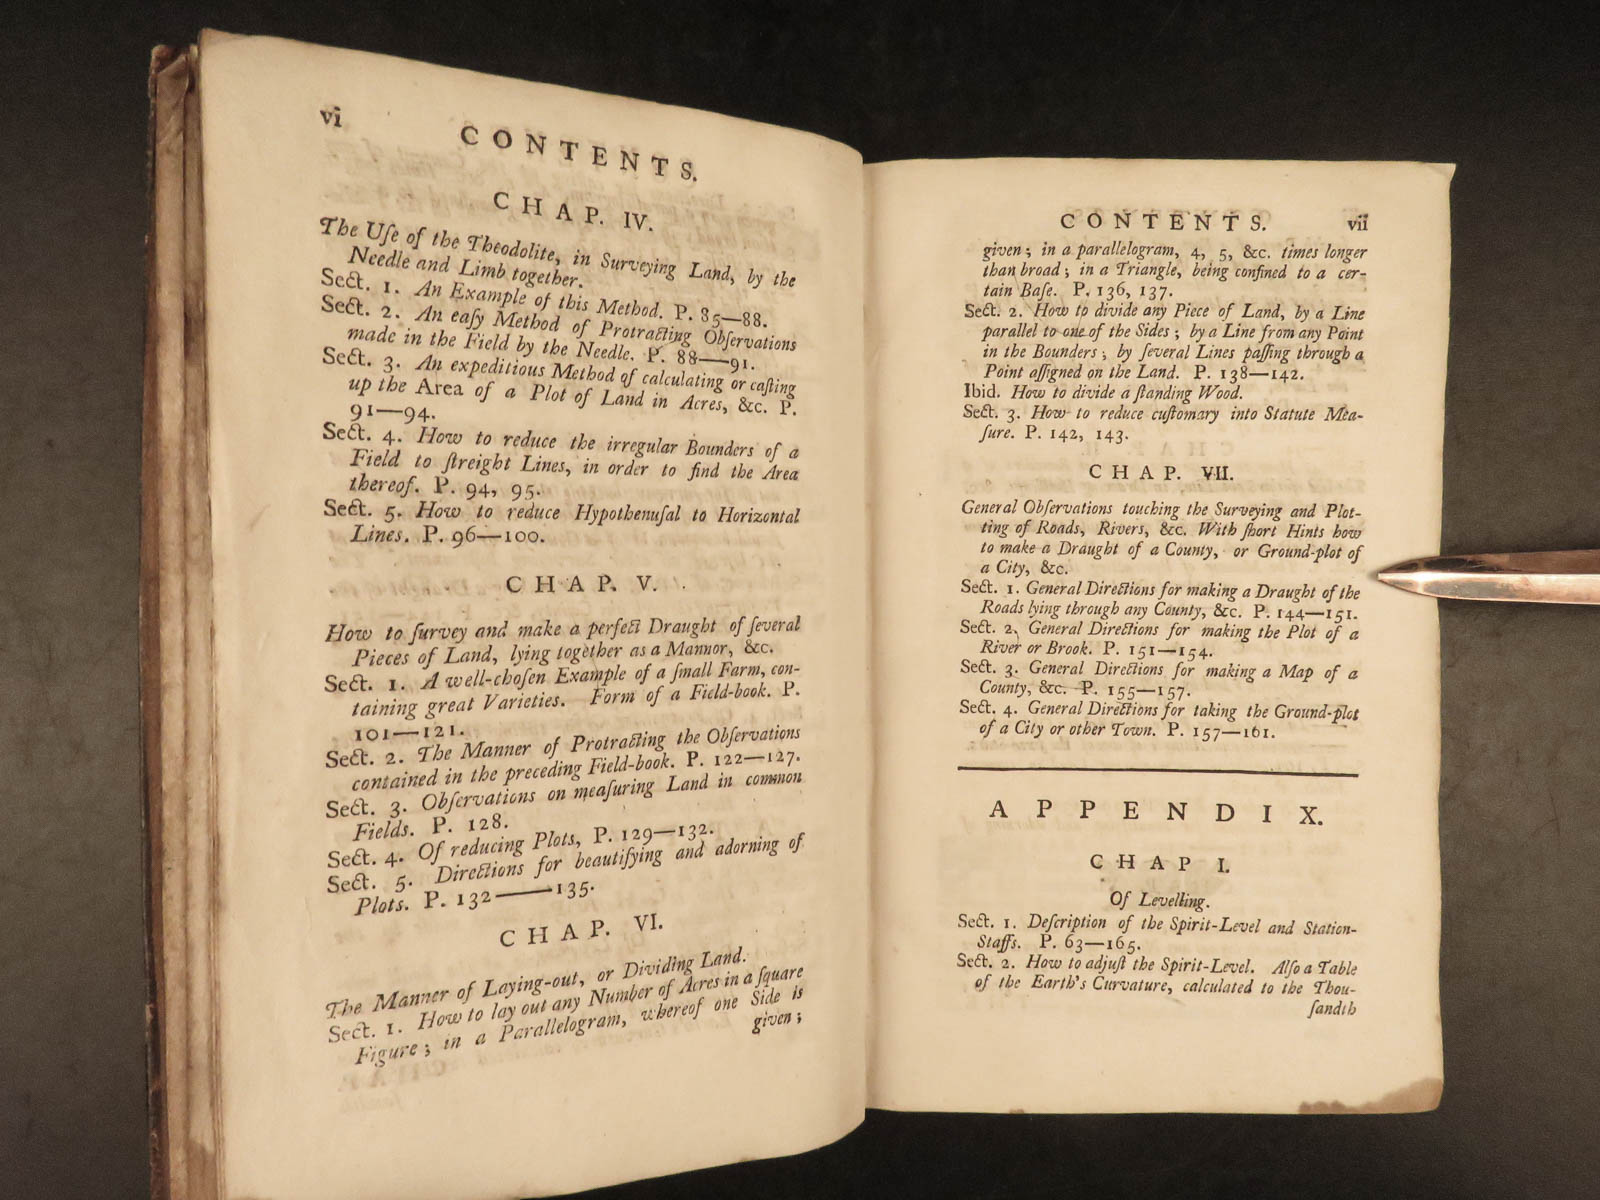 vi
CONTENTS.
CHAP. IV.
The Uſe of the Theodolite, in Surveying Land, by the
Needle and Limb together.
Sect. 1. An Example of this Method. P. 85—88.
Sect. 2. An eaſy Method of Protracting Obſervations
made in the Field by the Needle. P. 88—91.
Sect. 3. An expeditious Method of calculating or caſting
up the Area of a Plot of Land in Acres, &c. P.
91—94.
Sect. 4. How to reduce the irregular Bounders of a
Field to ſtreight Lines, in order to find the Area
thereof. P. 94, 95.
Sect. 5. How to reduce Hypothenuſal to Horizontal
Lines. P. 96—100.
CHAP. V.
How to ſurvey and make a perfect Draught of ſeveral
Pieces of Land, lying together as a Mannor, &c.
Sect. 1. A well-choſen Example of a ſmall Farm, con-
taining great Varieties. Form of a Field-book. P.
101—121.
Sect. 2. The Manner of Protracting the Obſervations
contained in the preceding Field-book. P. 122—127.
Sect. 3. Obſervations on meaſuring Land in common
Fields. P. 128.
Sect. 4. Of reducing Plots, P. 129—132.
Sect. 5. Directions for beautifying and adorning of
Plots. P. 132——135.
CHAP. VI.
The Manner of Laying-out, or Dividing Land.
Sect. 1. How to lay out any Number of Acres in a ſquare
Figure; in a Parallelogram, whereof one Side is
given;
CONTENTS. vii
given; in a parallelogram, 4, 5, &c. times longer
than broad; in a Triangle, being confined to a cer-
tain Baſe. P. 136, 137.
Sect. 2. How to divide any Piece of Land, by a Line
parallel to one of the Sides; by a Line from any Point
in the Bounders; by ſeveral Lines paſſing through a
Point aſſigned on the Land. P. 138—142.
Ibid. How to divide a ſtanding Wood.
Sect. 3. How to reduce cuſtomary into Statute Mea-
ſure. P. 142, 143.
CHAP. VII.
General Obſervations touching the Surveying and Plot-
ting of Roads, Rivers, &c. With ſhort Hints how
to make a Draught of a County, or Ground-plot of
a City, &c.
Sect. 1. General Directions for making a Draught of the
Roads lying through any County, &c. P. 144—151.
Sect. 2. General Directions for making the Plot of a
River or Brook. P. 151—154.
Sect. 3. General Directions for making a Map of a
County, &c. P. 155—157.
Sect. 4. General Directions for taking the Ground-plot
of a City or other Town. P. 157—161.
APPENDIX.
CHAP I.
Of Levelling.
Sect. 1. Deſcription of the Spirit-Level and Station-
Staffs. P. 63—165.
Sect. 2. How to adjuſt the Spirit-Level. Alſo a Table
of the Earth's Curvature, calculated to the Thou-
ſandth